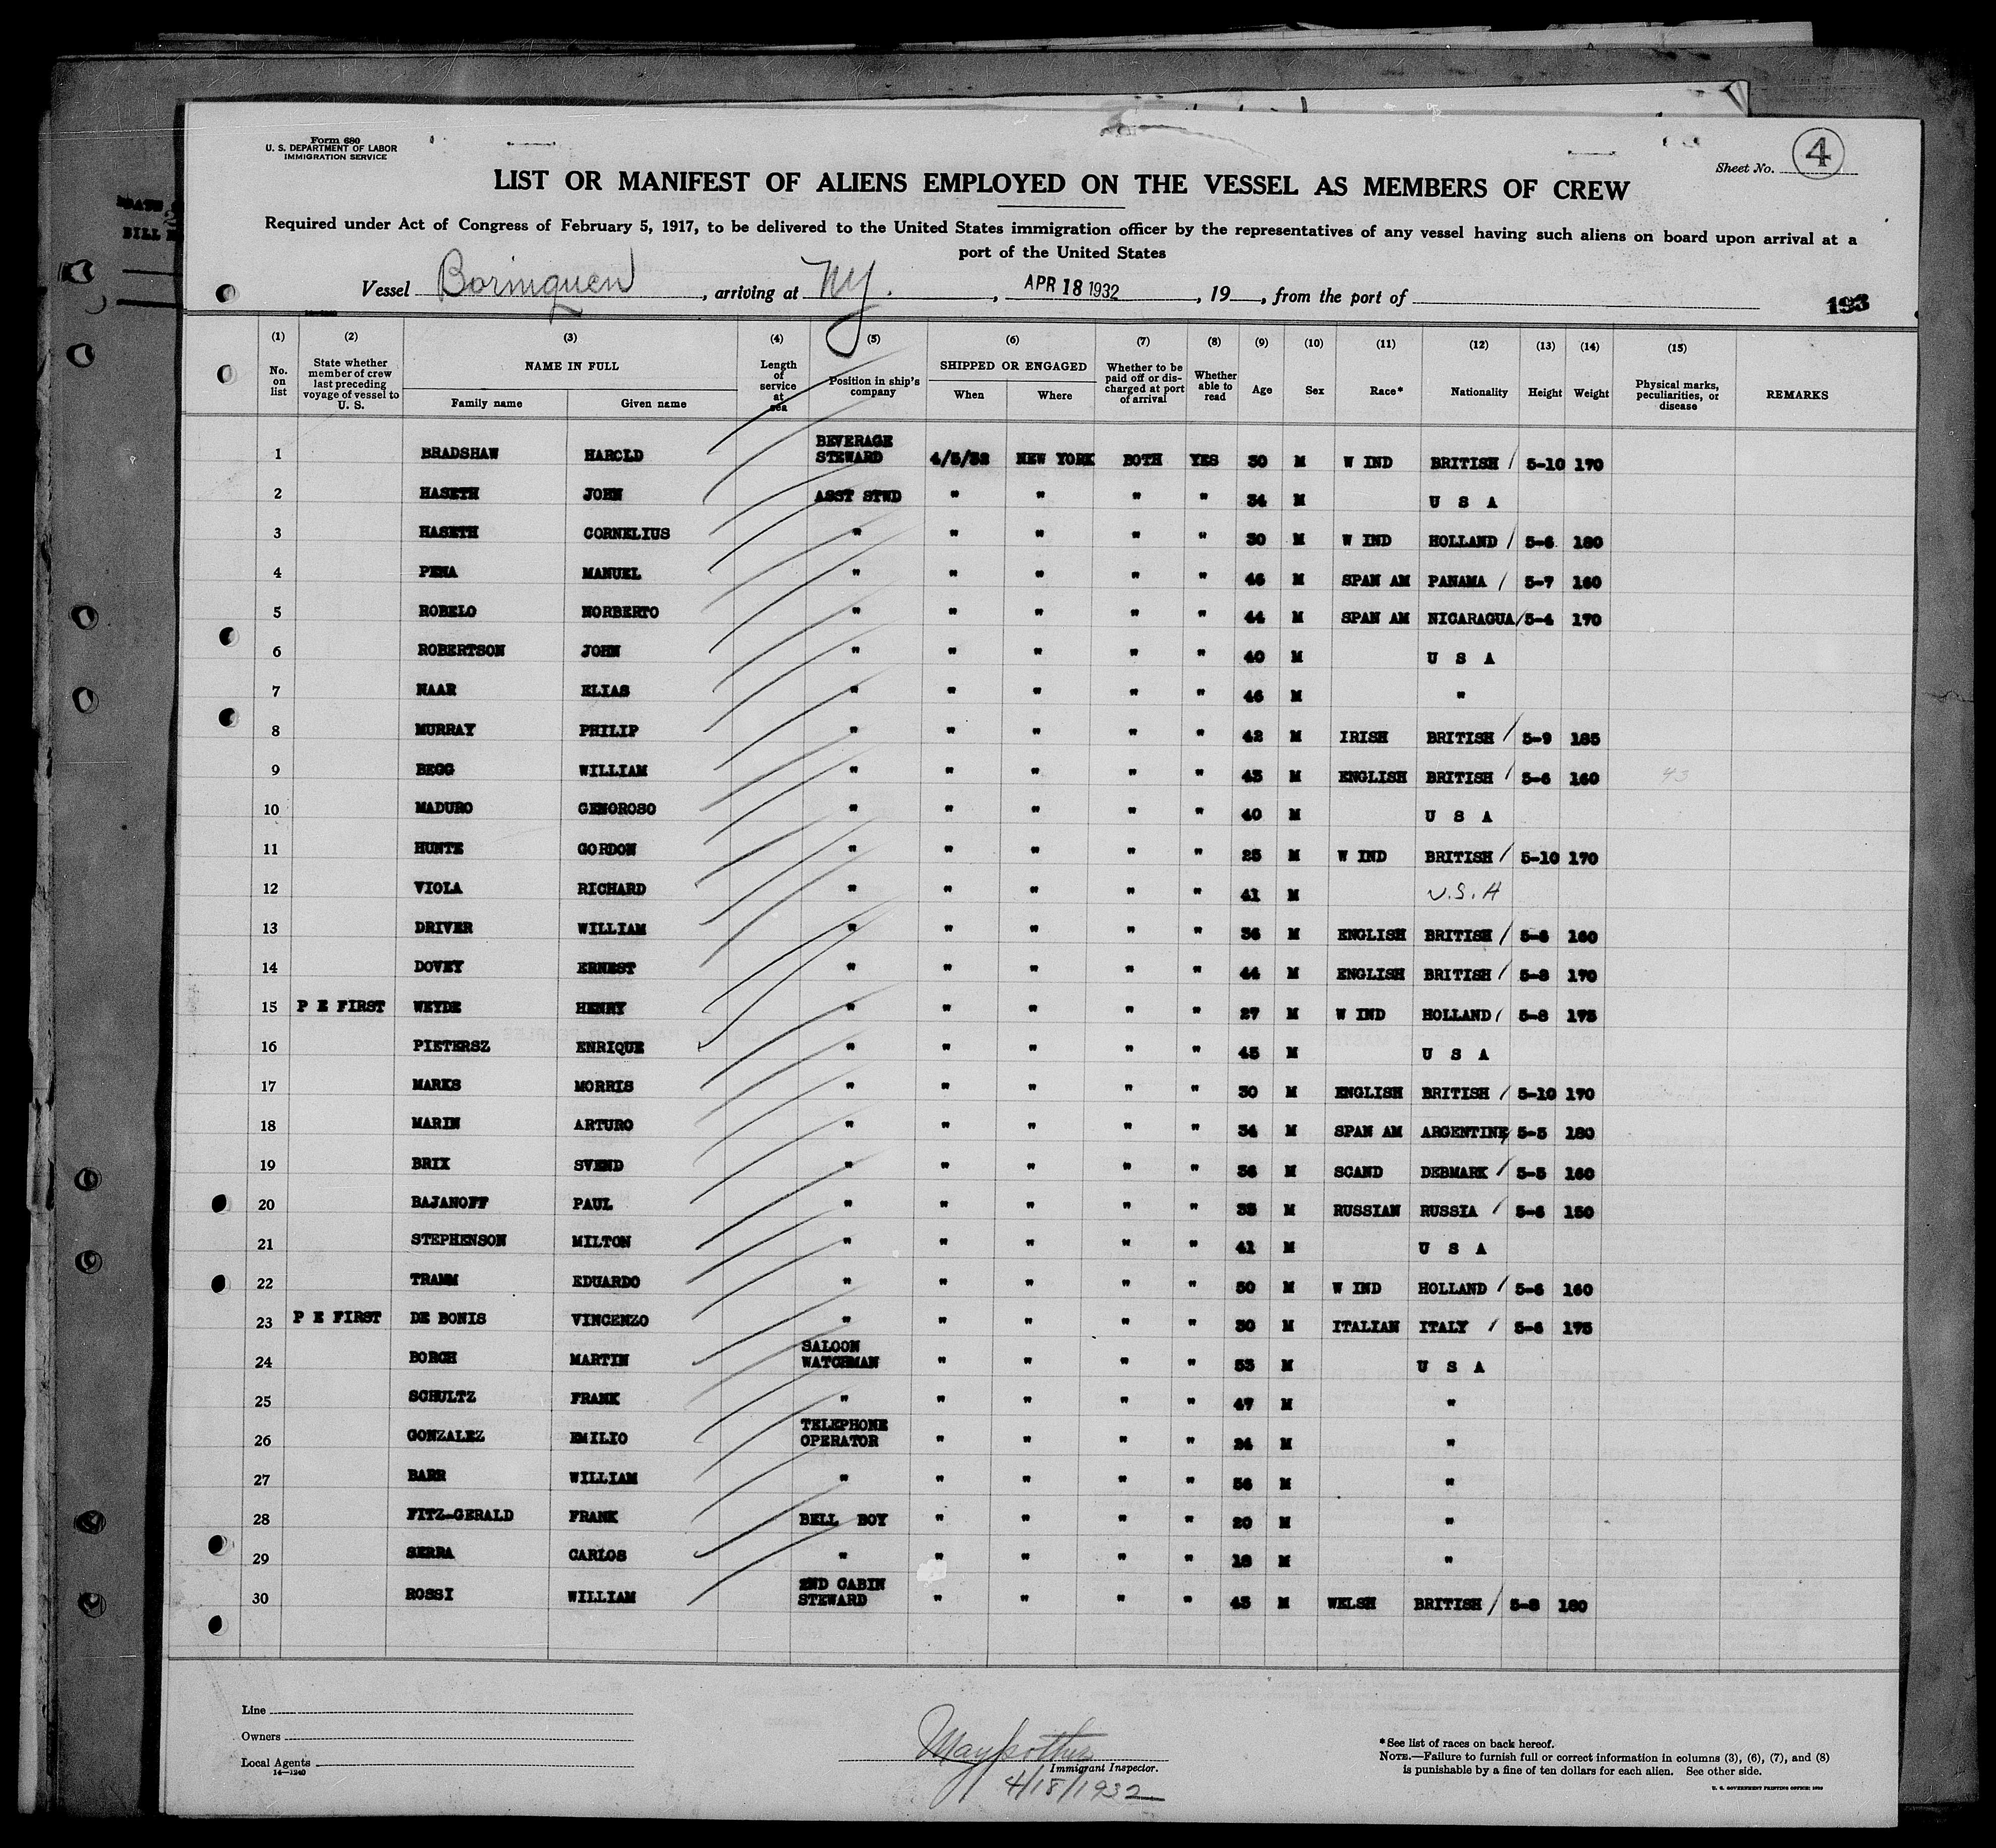 Form 680
U. S. DEPARTMENT OF LABOR
IMMIGRATION SERVICE
Sheet No. 4
LIST OR MANIFEST OF ALIENS EMPLOYED ON THE VESSEL AS MEMBERS OF CREW
Required under Act of Congress of February 5, 1917, to be delivered to the United States immigration officer by the representatives of any vessel having such aliens on board upon arrival at a
port of the United States
Vessel Borinquen, arriving at NY., APR 18 1932, 19, from the port of
193
(1) (2) (3) (4) (5) (6) (7) (8) (9) (10) (11) (12) (13) (14) (15)
No. on list State whether member of crew last preceding voyage of vessel to U. S. NAME IN FULL Family name Given name Length of service at sea Position in ship's company SHIPPED OR ENGAGED When Where Whether to be paid off or discharged at port of arrival Whether able to read Age Sex Race* Nationality Height Weight Physical marks, peculiarities, or disease REMARKS
1 BRADSHAW HAROLD BEVERAGE STEWARD 4/5/32 NEW YORK BOTH YES 30 M W IND BRITISH / 5-10 170
2 HASETH JOHN ASST STWD " " " " 34 M U S A
3 HASETH CORNELIUS " " " " " 30 M W IND HOLLAND / 5-6 180
4 PENA MANUEL " " " " " 46 M SPAN AM PANAMA / 5-7 160
5 ROBELO NORBERTO " " " " " 44 M SPAN AM NICARAGUA / 5-4 170
6 ROBERTSON JOHN " " " " " 40 M U S A
7 NAAR ELIAS " " " " " 46 M "
8 MURRAY PHILIP " " " " " 42 M IRISH BRITISH / 5-9 185
9 BEGG WILLIAM " " " " " 43 M ENGLISH BRITISH / 5-6 160 43
10 MADURO GENOROSO " " " " " 40 M U S A
11 HUNTE GORDON " " " " " 25 M W IND BRITISH / 5-10 170
12 VIOLA RICHARD " " " " " 41 M U.S.A
13 DRIVER WILLIAM " " " " " 36 M ENGLISH BRITISH / 5-6 160
14 DOVEY ERNEST " " " " " 44 M ENGLISH BRITISH / 5-8 170
15 P E FIRST WEYDE HENRY " " " " " 27 M W IND HOLLAND / 5-8 175
16 PIETERSZ ENRIQUE " " " " " 45 M U S A
17 MARKS MORRIS " " " " " 30 M ENGLISH BRITISH / 5-10 170
18 MARIN ARTURO " " " " " 34 M SPAN AM ARGENTINE / 5-5 180
19 BRIX SVEND " " " " " 36 M SCAND DEBMARK / 5-5 160
20 BAJANOFF PAUL " " " " " 35 M RUSSIAN RUSSIA / 5-6 150
21 STEPHENSON MILTON " " " " " 41 M U S A
22 TRAMM EDUARDO " " " " " 50 M W IND HOLLAND / 5-6 160
23 P E FIRST DE BONIS VINCENZO " " " " " 30 M ITALIAN ITALY / 5-6 175
24 BORCH MARTIN SALOON WATCHMAN " " " " 53 M U S A
25 SCHULTZ FRANK " " " " " 47 M "
26 GONZALEZ EMILIO TELEPHONE OPERATOR " " " " 24 M "
27 BARR WILLIAM " " " " " 56 M "
28 FITZ-GERALD FRANK BELL BOY " " " " 20 M "
29 SERRA CARLOS " " " " " 18 M "
30 ROSSI WILLIAM 2ND CABIN STEWARD " " " " 43 M WELSH BRITISH / 5-8 180
Line
Owners
Local Agents
14—1240
Immigrant Inspector.
4/18/1932
*See list of races on back hereof.
NOTE.—Failure to furnish full or correct information in columns (3), (6), (7), and (8)
is punishable by a fine of ten dollars for each alien. See other side.
U. S. GOVERNMENT PRINTING OFFICE: